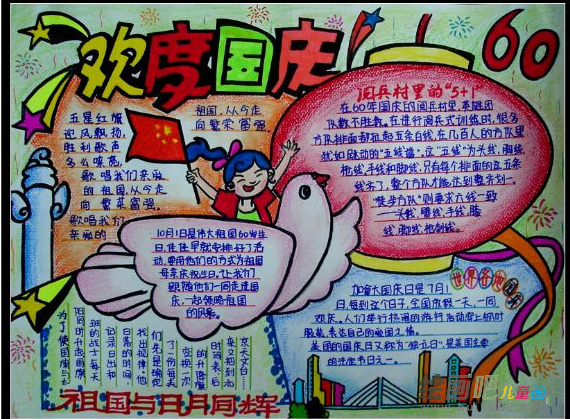 欢度国庆
60
五星红旗
迎风飘扬,
胜利歌声
多么嘹亮,
歌唱我们亲爱
的祖国,从今走
向繁荣富强。
歌唱我们
亲爱的
祖国,从今走
向繁荣富强。
阅兵村里的"5+1"
在60年国庆的阅兵村里,英雄团
队数不胜数。在进行阅兵式训练时,很多
方队排面都拉起五条白线,在几百人的方队里
犹如跳动的"五线谱"。这"五线"为头线,胸线,
枪线,手线和脚线,只有每个排面的这五条
线齐了,整个方队才能达到整齐划一。
"徒步方队"则要求六线一致
——头线,腰线,手线,腿
线,脚线,枪刺线。
10月1日是伟大祖国60岁生
日,住住早就安排好了活
动,要用他们的方式为祖国
母亲庆祝生日,让我们
跟随他们一同走进国
庆,一起领略祖国
的风景。
世界各地国庆
加拿大国庆日是7月1
日,每到这个日子,全国放假一天,一同
欢庆。人们举行热闹的游行活动,穿上枫叶
服装,表达自己的爱国之情。
美国的国庆日又称为"独立日",是美国主要
的法定节日之一。
为了使国旗与太
阳同时升起国旗
班的战士每天
记录日出和
日落的时间
找出规律,
们先是确定
了一份每天
变换一次
的升降旗
时间表,后
来又把到北
京天文台……
祖国与日月同辉
绘画吧
儿童画